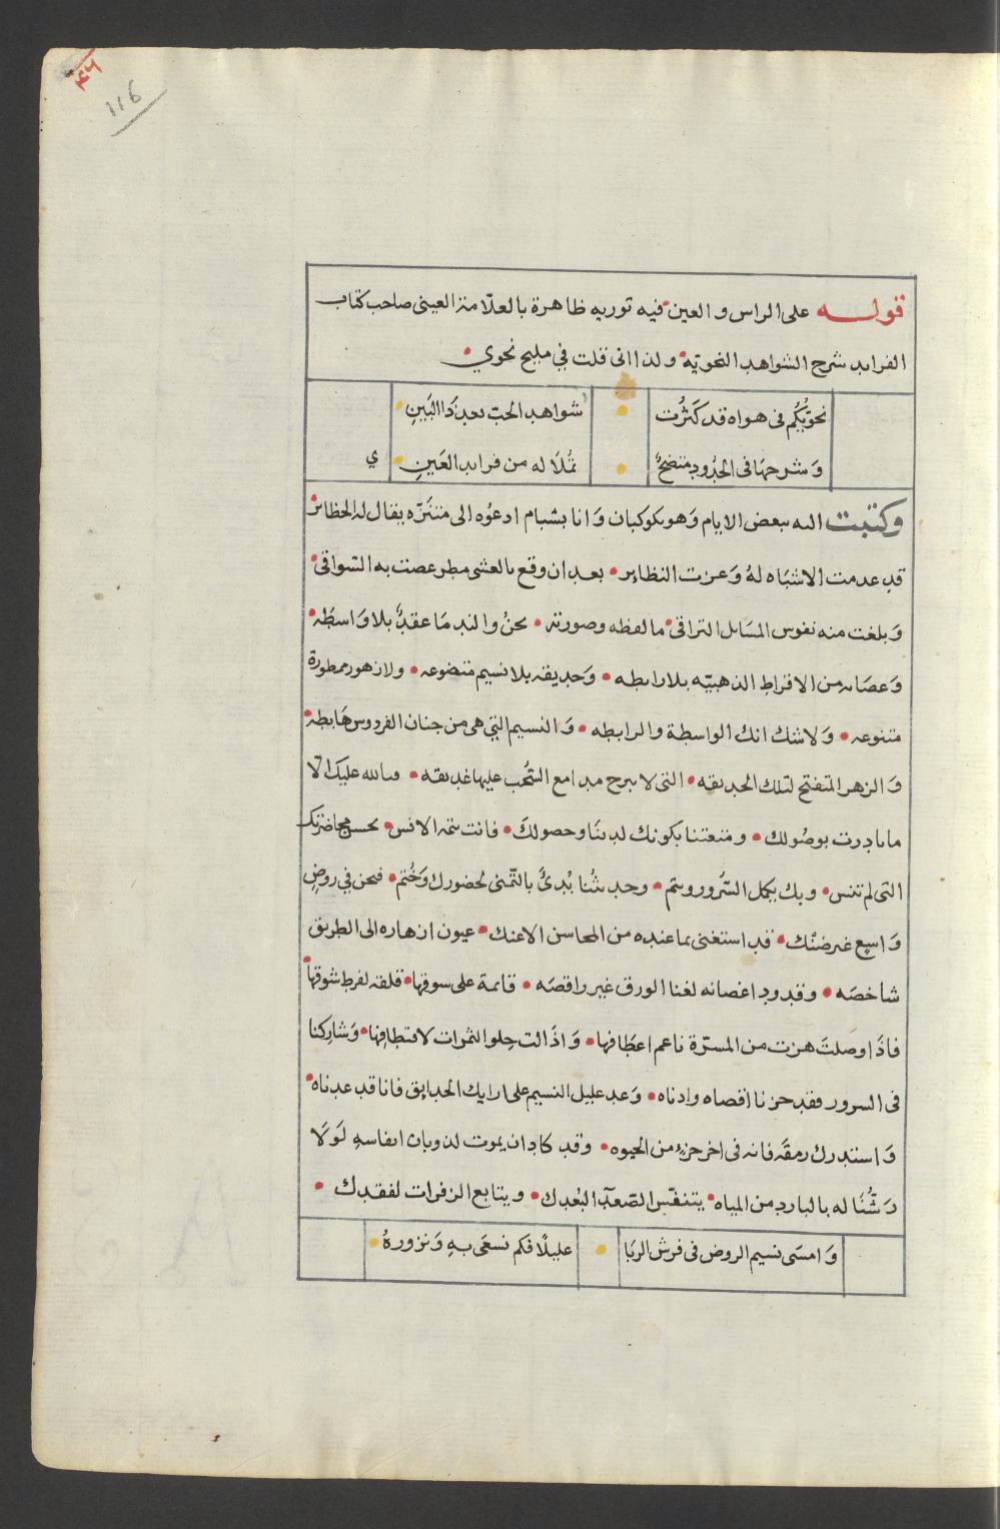 116
قوله على الراس والعين فيه توريه ظاهرة بالعلّامة العينى صاحب كتاب
الفرايد شرح الشواهد النحويّه ولذا انى قلت في مليح نحوي
نحوّيُكُم فى هواه قد كَثُرت شواهد الحبّ بعد ذَا البَينِ
وَشرحهَا فى الخدُود متضحٌ تُملَا له من فرايد العَينِ ي
وكتبت اليه ببعض الايام وَهو بكوكبان وَانا بشبام ادعوُه الى متنَزّه يقال له الحظائر
قد عدمت الاشبَاه لهُ وَعزت النظاير بعد ان وقع بالعشى مطر غصت به السّواقى
وَبلغت منه نفوس المسَايل التراقى ما لفظه وصورته نحنُ والند مَا عقدٌ بلا وَاسطَه
وَعصابه من الاقراط الذهبيّه بلا رابطه وَحديقه بلا نسيم متضوعه ولا زهور ممطورة
متنوعه وَلا شك انك الواسطة والرابطه وَالنسيم التي هى من جنان الفردوس هَابطه
وَالزهر المتفتح لتلك الحديقه التى لا تبرح مدامع السُّحب عليها غديقه فبالله عليك الّا
ما بادرت بوصُولك ومتعتنا بكونك لدينَا وحصولكَ فانت تتمه الانس بحسن محاضرتك
التى لم تنس وبك يكمل السّرور ويتم وحديثُنا بُدئَ بالتّمنى لحضورك وَخُتم فنحن في روضٍ
وَاسعٍ غير ضنْك قد استغنى بما عنده من المحاسن الا عنك عيون ازهاره الى الطريق
شاخصَه وقدود اغصانه لغنا الورق غير راقصَه قايمة على سوقها قلقه لفرط شوقها
فاذَا وصلتَ هزت من المسرّة ناعم اعطَافها وَاذَالت حلو الثمرات لاقتطافها وَشاركنا
فى السرور فقد حزنا اقصاه وادناه وَعد عليل النسيم على ارايك الحدايق فانا قد عدناه
وَاستدرك رمقَه فانه فى اخر جزءٍ من الحيوه وَقد كاد ان يموت لذوبان انفاسهِ لَولَا
رَشُّنَا له بالبارد من المياه يتنفّس الصّعدآ لبُعدك ويتابع الزفرات لفقدك
وَامسَى نسيم الروض فى فرش الربَا عليلًا فكم نسعَى بهِ وَنزورهُ